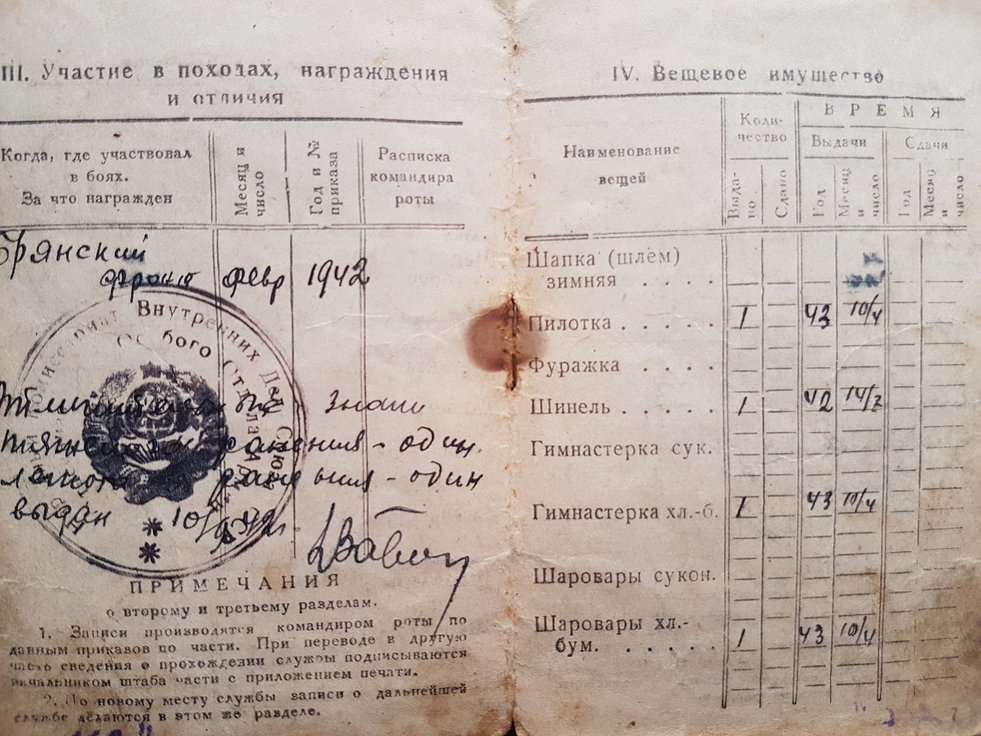 III. Участие в походах, награждения
и отличия
Когда, где участвовал
в боях.
За что награжден
Месяц и
число
Год и №
приказа
Расписка
командира
роты
Брянский
фронт февр 1942
Внутренних Дел
Особого Отдела
знаки
ранения - один.
ранения - один
выдан 10/
ПРИМЕЧАНИЯ
о второму и третьему разделам.
1. Записи производятся командиром роты по
данным приказов по части. При переводе в другую
часть сведения о прохождении службы подписываются
начальником штаба части с приложением печати.
2. По новому месту службы записи о дальнейшей
службе делаются в этом же разделе.
IV. Вещевое имущество
Наименование
вещей
Коли-
чество
ВРЕМЯ
Выдачи
Сдачи
Выда-
но
Сдано
Год
Месяц
и
число
Год
Месяц
и
число
Шапка (шлем)
зимняя . . . .
Пилотка . . . . . 1 43 10/4
Фуражка . . . .
Шинель . . . . . 1 42 14/2
Гимнастерка сук.
Гимнастерка хл.-б. 1 43 10/4
Шаровары сукон.
Шаровары хл.-
бум. . . . . . . 1 43 10/4